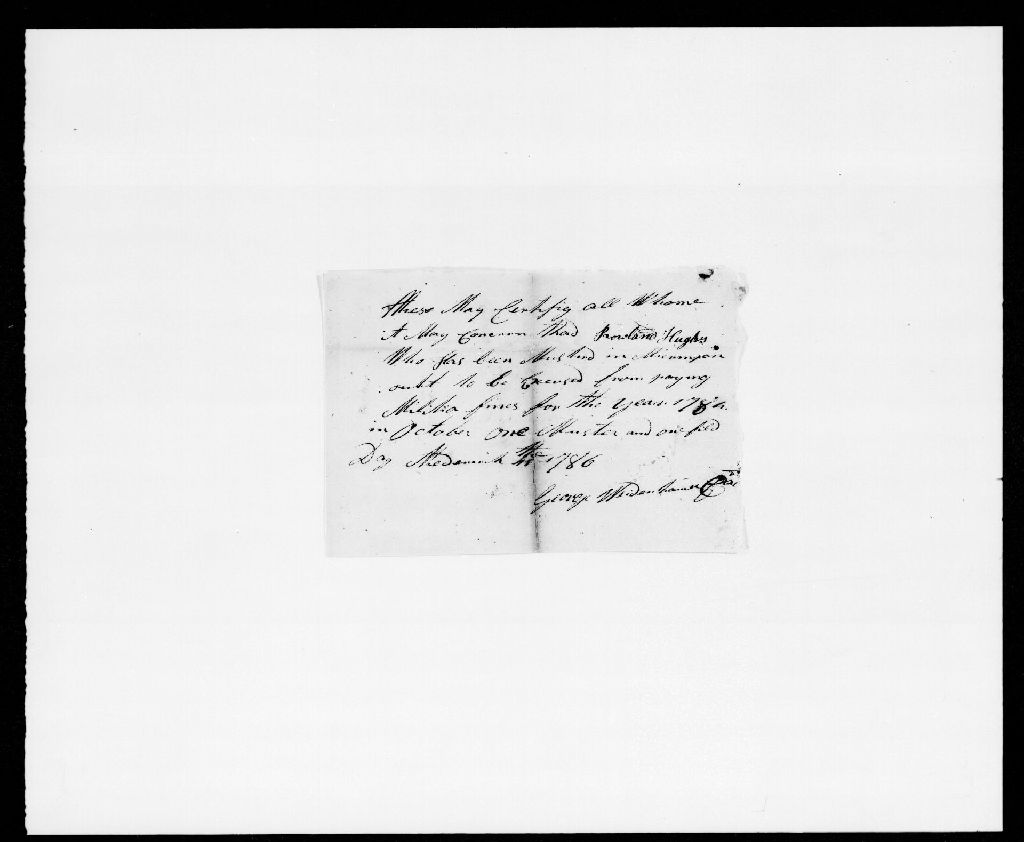 these May Certifig all Whome
it May Concern thad Rowland Hughs
Who Has been Mustred in
ouht to be Excused from paying
Militia fines for the Year 1786
in October one Muster and one filed
Day 1786
George